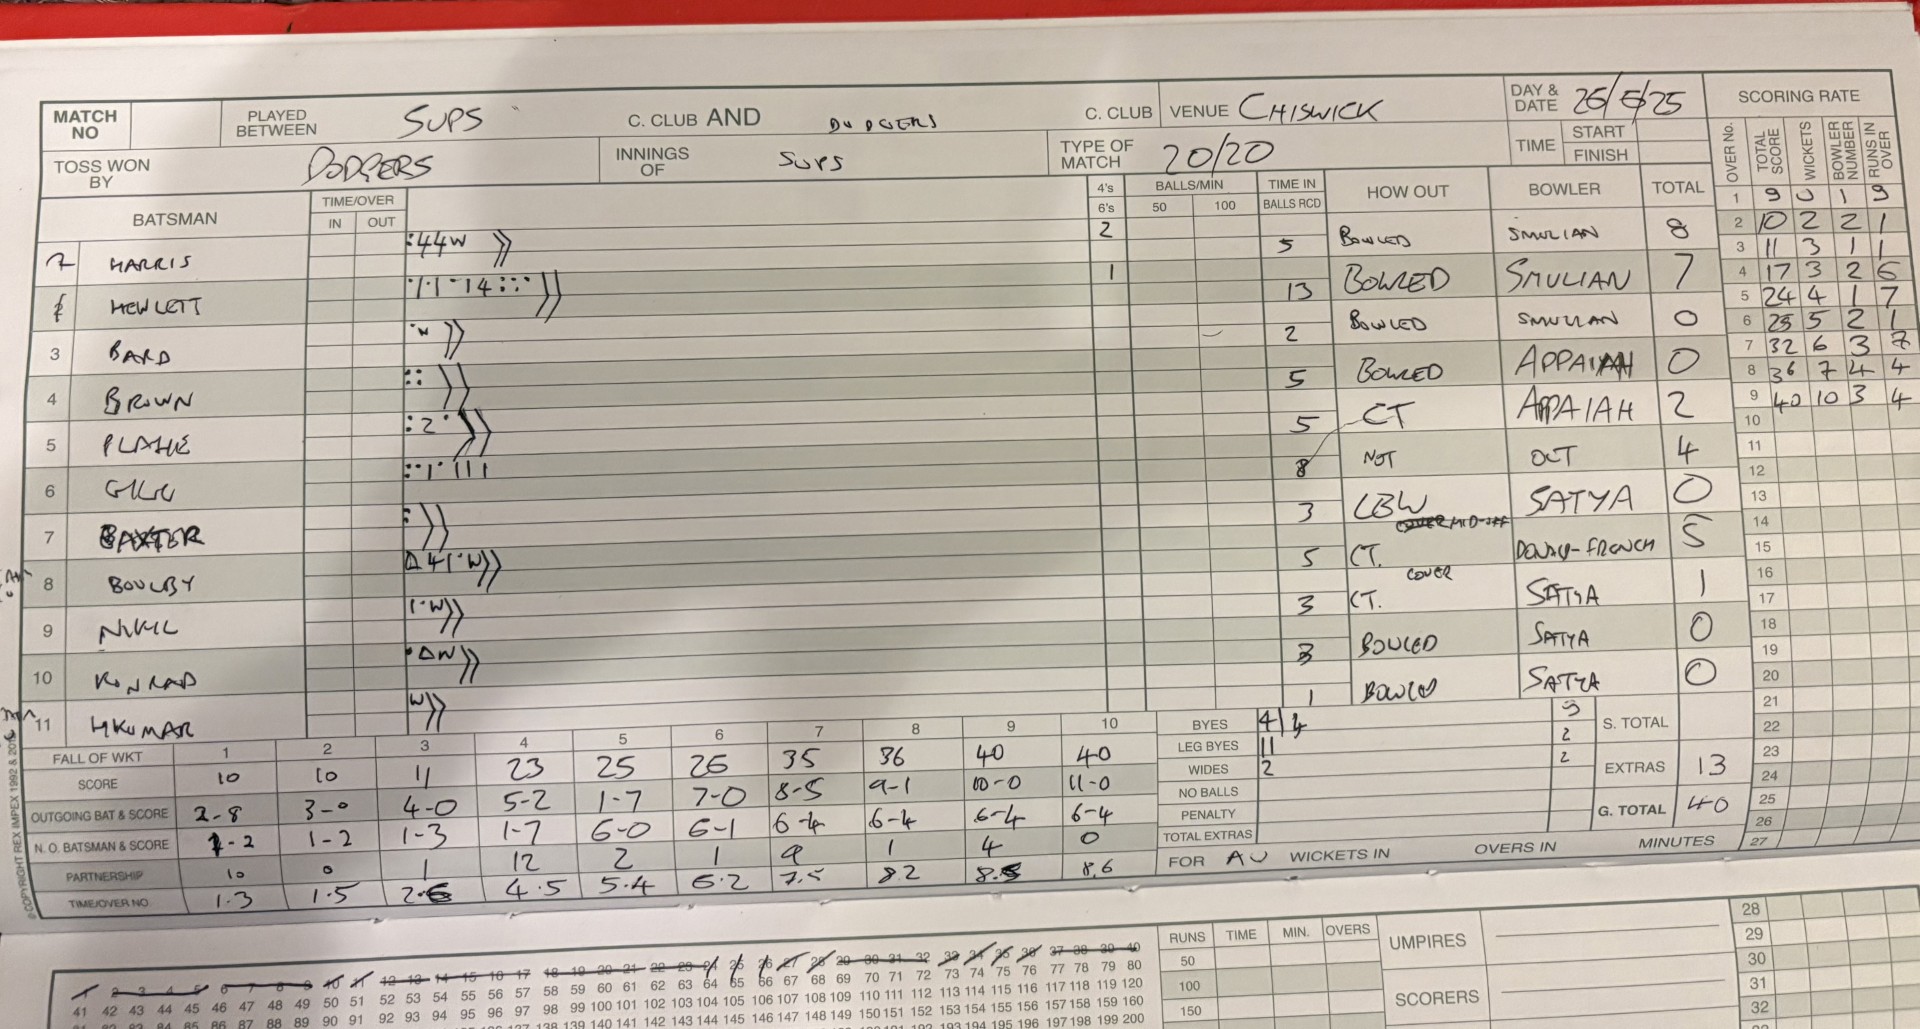 MATCH NO PLAYED BETWEEN SUPS C. CLUB AND DODGERS C. CLUB VENUE CHISWICK DAY & DATE 26/5/25 SCORING RATE
TOSS WON BY DODGERS INNINGS OF SUPS TYPE OF MATCH 20/20 TIME START FINISH
OVER No. TOTAL SCORE WICKETS BOWLER NUMBER RUNS IN OVER
BATSMAN TIME/OVER IN OUT 4's 6's BALLS/MIN 50 100 TIME IN BALLS RCD HOW OUT BOWLER TOTAL
HARRIS :44W 2 5 BOWLED SMULIAN 8
HEWLETT 1 13 BOWLED SMULIAN 7
3 BARD ·W 2 BOWLED SMULIAN 0
4 BROWN 5 BOWLED APPAIAH 0
5 PLAHE :2· 5 CT APPAIAH 2
6 8 NOT OUT 4
7 BAXTER 3 LBW SATYA 0
8 BOULBY Δ41·W 5 CT. MID-OFF 5
9 NIKIL 1·W 3 CT. COVER SATYA 1
10 KONRAD ·ΔW 3 BOWLED SATYA 0
11 HKUMAR W 1 BOWLED SATYA 0
1 9 0 1 9
2 10 2 2 1
3 11 3 1 1
4 17 3 2 6
5 24 4 1 7
6 25 5 2 1
7 32 6 3 7
8 36 7 4 4
9 40 10 3 4
10
11
12
13
14
15
16
17
18
19
20
21
22
23
24
25
26
27
FALL OF WKT 1 2 3 4 5 6 7 8 9 10
SCORE 10 10 11 23 25 26 35 36 40 40
OUTGOING BAT & SCORE 2-8 3-0 4-0 5-2 1-7 7-0 8-5 9-1 10-0 11-0
N. O. BATSMAN & SCORE 1-2 1-2 1-3 1-7 6-0 6-1 6-4 6-4 6-4 6-4
PARTNERSHIP 10 0 1 12 2 1 9 1 4 0
TIME/OVER NO. 1.3 1.5 2.6 4.5 5.4 6.2 7.5 8.2 8.5 8.6
BYES 4 S. TOTAL
LEG BYES 11 2
WIDES 2 2 EXTRAS 13
NO BALLS
PENALTY G. TOTAL 40
TOTAL EXTRAS
FOR WICKETS IN OVERS IN MINUTES
© COPYRIGHT REX IMPEX 1992 &
1 2 3 4 5 6 7 8 9 10 11 12 13 14 15 16 17 18 19 20 21 22 23 24 25 26 27 28 29 30 31 32 33 34 35 36 37 38 39 40
41 42 43 44 45 46 47 48 49 50 51 52 53 54 55 56 57 58 59 60 61 62 63 64 65 66 67 68 69 70 71 72 73 74 75 76 77 78 79 80
81 82 83 84 85 86 87 88 89 90 91 92 93 94 95 96 97 98 99 100 101 102 103 104 105 106 107 108 109 110 111 112 113 114 115 116 117 118 119 120
137 138 139 140 141 142 143 144 145 146 147 148 149 150 151 152 153 154 155 156 157 158 159 160
191 192 193 194 195 196 197 198 199 200
RUNS TIME MIN. OVERS
50
100
150
UMPIRES
SCORERS
28
29
30
31
32